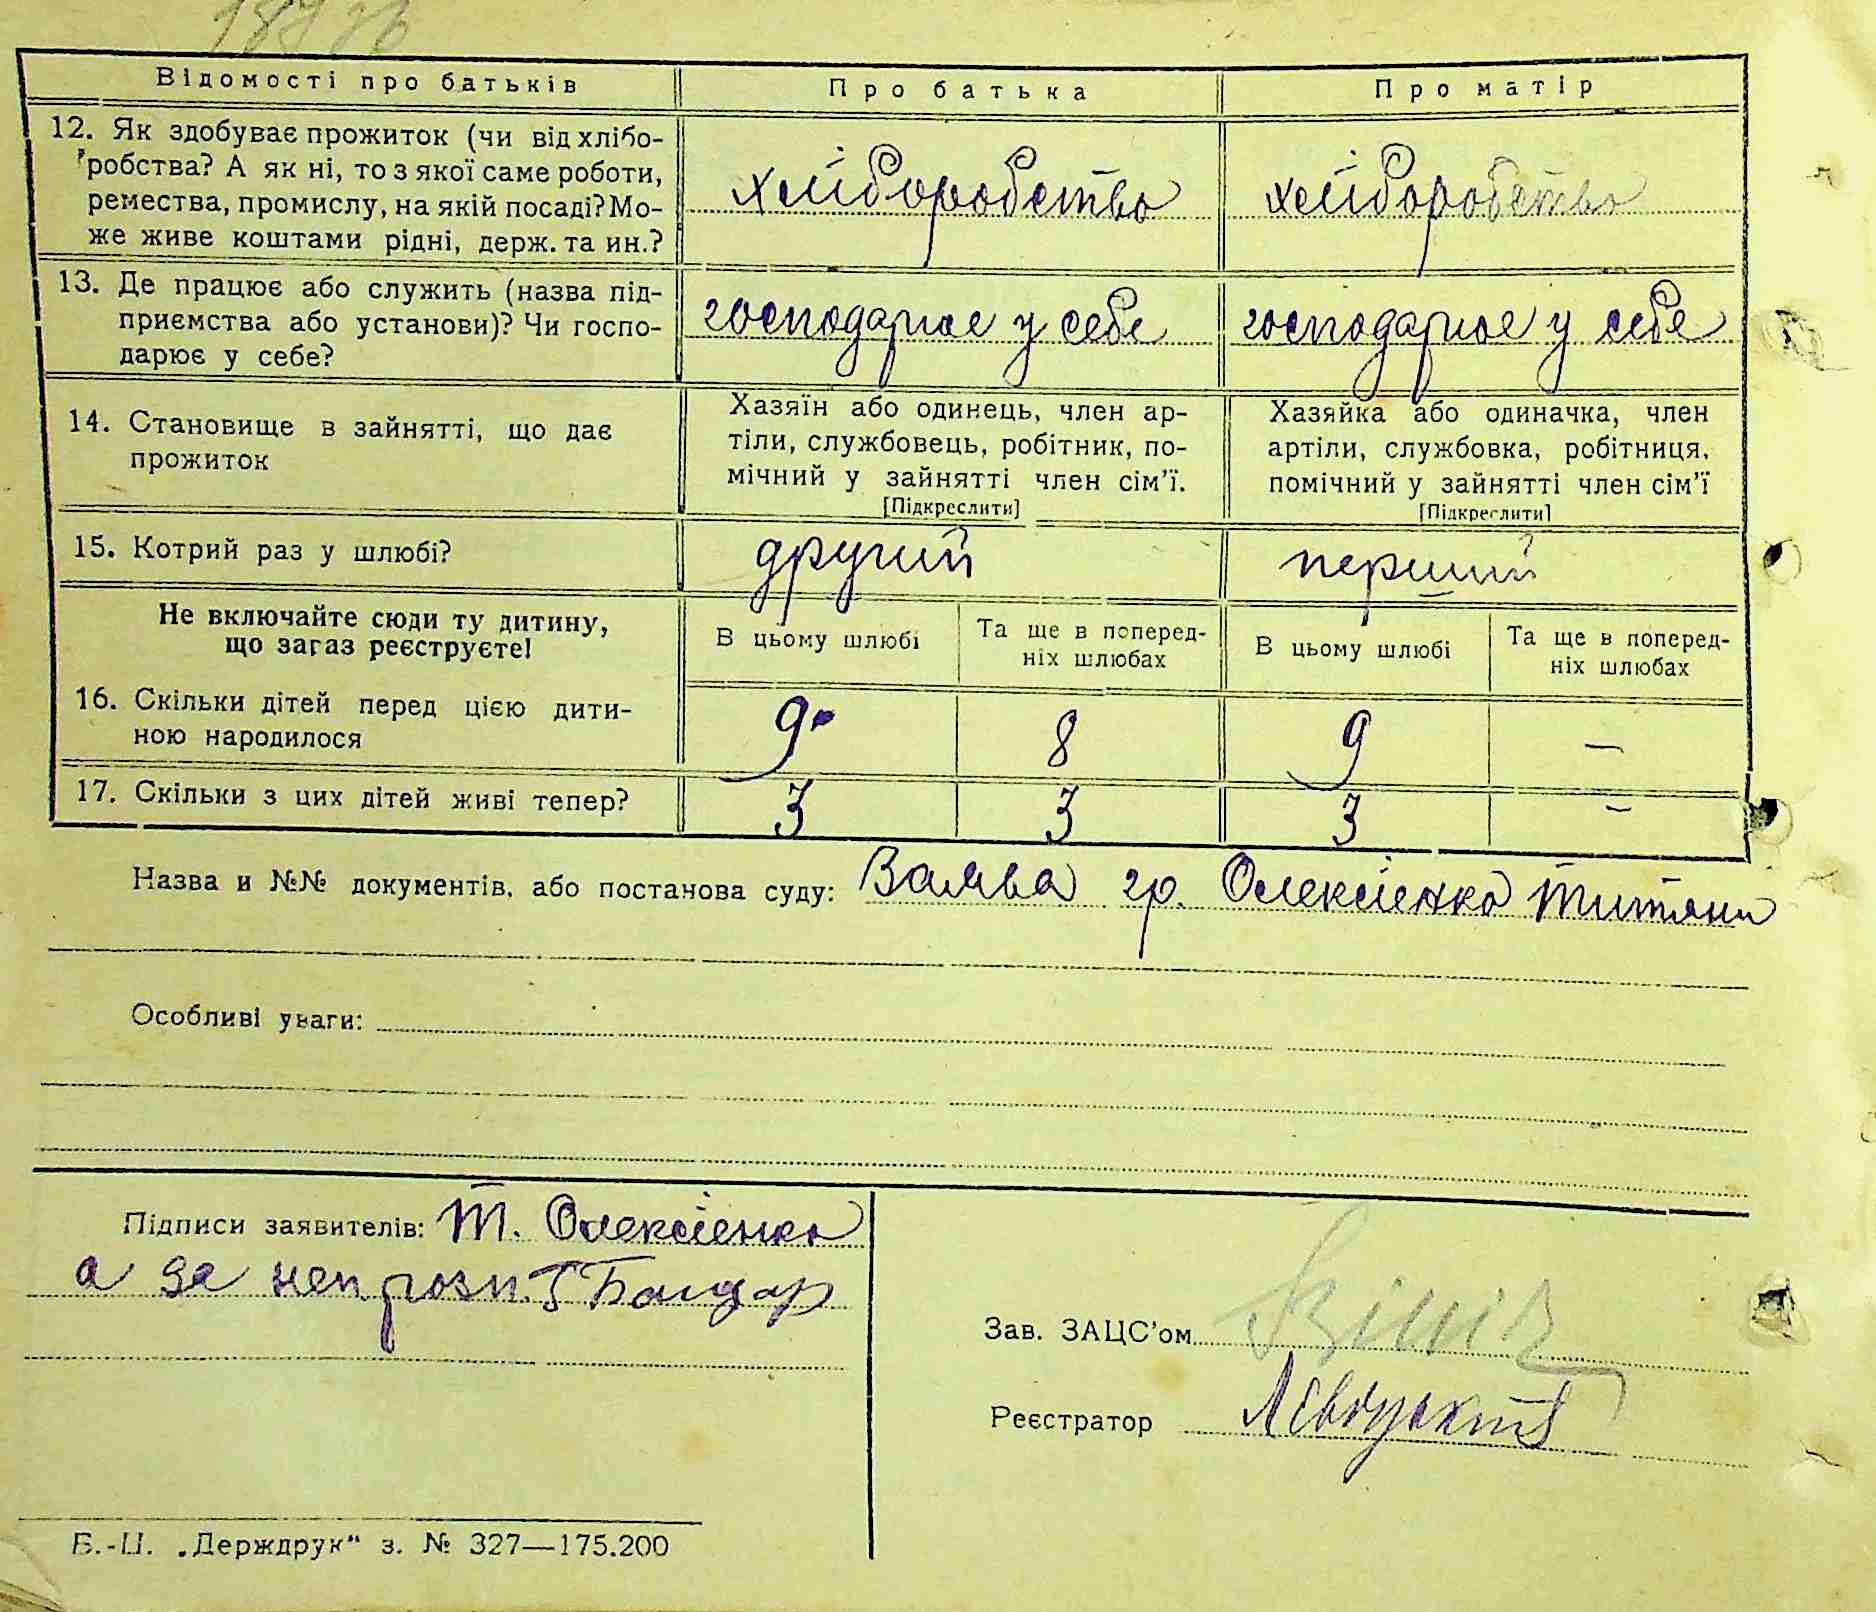 Відомості про батьків Про батька Про матір
12. Як здобуває прожиток (чи від хлібо-
робства? А як ні, то з якої саме роботи,
ремества, промислу, на якій посаді? Мо-
же живе коштами рідні, держ. та ин.?
хліборобство хліборобство
13. Де працює або служить (назва під-
приємства або установи)? Чи госпо-
дарює у себе?
господарює у себе господарює у себе
14. Становище в зайнятті, що дає
прожиток
Хазяїн або одинець, член ар-
тіли, службовець, робітник, по-
мічний у зайнятті член сім'ї.
[Підкреслити]
Хазяйка або одиначка, член
артіли, службовка, робітниця,
помічний у зайнятті член сім'ї
[Підкреслити]
15. Котрий раз у шлюбі? другий перший
Не включайте сюди ту дитину,
що загаз реєструєте!
В цьому шлюбі
Та ще в поперед-
ніх шлюбах
В цьому шлюбі
Та ще в поперед-
ніх шлюбах
16. Скільки дітей перед цією дити-
ною народилося
9 8 9 —
17. Скільки з цих дітей живі тепер? 3 3 3 –
Назва и №№ документів, або постанова суду: Заява гр. Олексієнко Титяни
Особливі уваги:
Підписи заявителів: Т. Олексієнко
а за неп. розп.
Зав. ЗАЦС'ом
Реєстратор
Б.-Ц. „Держдрук“ з. № 327—175.200